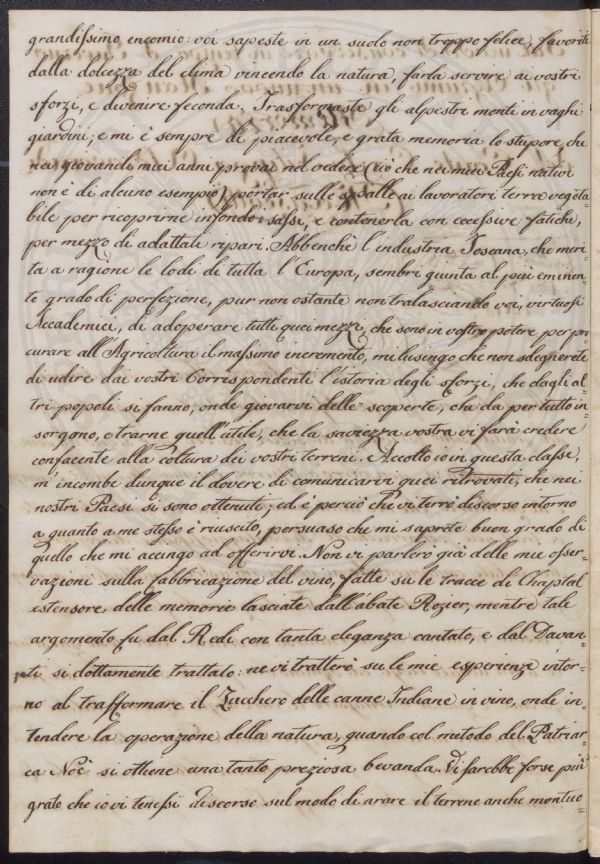 grandissimo encomio: voi sapeste in un suolo non troppo felice, favorite
dalla dolcezza del clima vincendo la natura, farla servire ai vostri
sforzi, e divenire feconda. Trasformaste gli alpestri monti in vaghi
giardini; e mi è sempre di piacevole, e grata memoria lo stupore, che
nei giovanili miei anni provai nel vedere (ciò che nei miei Paesi nativi
non è di alcuno esempio) portar sulle spalle ai lavoratori terra vegeta
bile per ricoprirne infondi sassi, e contenerla con eccessive fatiche,
per mezzo di adattati ripari. Abbenchè l'industria Toscana, che meri
ta a ragione le lodi di tutta l'Europa, sembri giunta al più eminen
te grado di perfezione, pur non ostante non tralasciando voi, virtuosi
Accademici, di adoperare tutti quei mezzi, che sono in vostro potere per pro
curare all'Agricoltura il massimo incremento, mi lusingo che non sdegnerete
di udire dai vostri Corrispondenti l'istoria degli sforzi, che dagli al
tri popoli si fanno, onde giovarvi delle scoperte, che da per tutto in
sorgono, e trarne quell'utile, che la saviezza vostra vi farà credere
confacente alla coltura dei vostri terreni. Accolto io in questa classe,
m'incombe dunque il dovere di comunicarvi quei ritrovati, che nei
nostri Paesi si sono ottenuti; ed è perciò che vi terrò discorso intorno
a quanto a me stesso è riuscito, persuaso che mi saprete buon grado di
quello che mi accingo ad offerirvi. Non vi parlerò già delle mie osser
vazioni sulla fabbricazione del vino, fatte su le tracce di Chaptal
estensore delle memorie lasciate dall'abate Rozier, mentre tale
argomento fu dal Redi con tanta eleganza cantato, e dal Davan
ti si dottamente trattato: ne vi tratterò su le mie esperienze intor
no al trasformare il Zucchero delle canne Indiane in vino, onde in
tendere la operazione della natura, quando col metodo del Patriar
ca Noè si ottiene una tanto preziosa bevanda. Vi sarebbe forse più
grato che io vi tenessi discorso sul modo di arare il terreno anche montuo